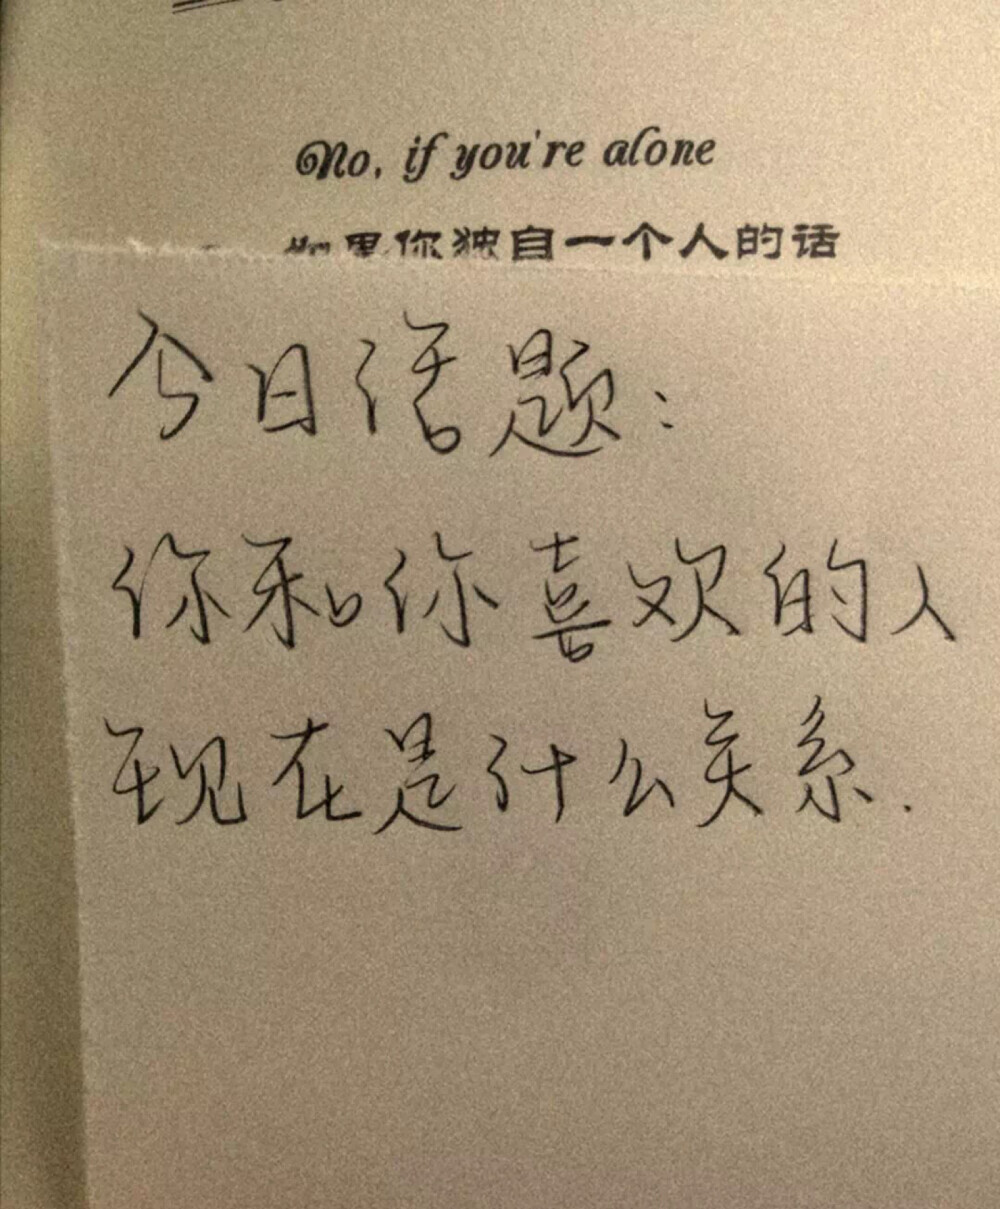 No, if you're alone
如果你独自一个人的话
今日话题：
你和你喜欢的人
现在是什么关系.